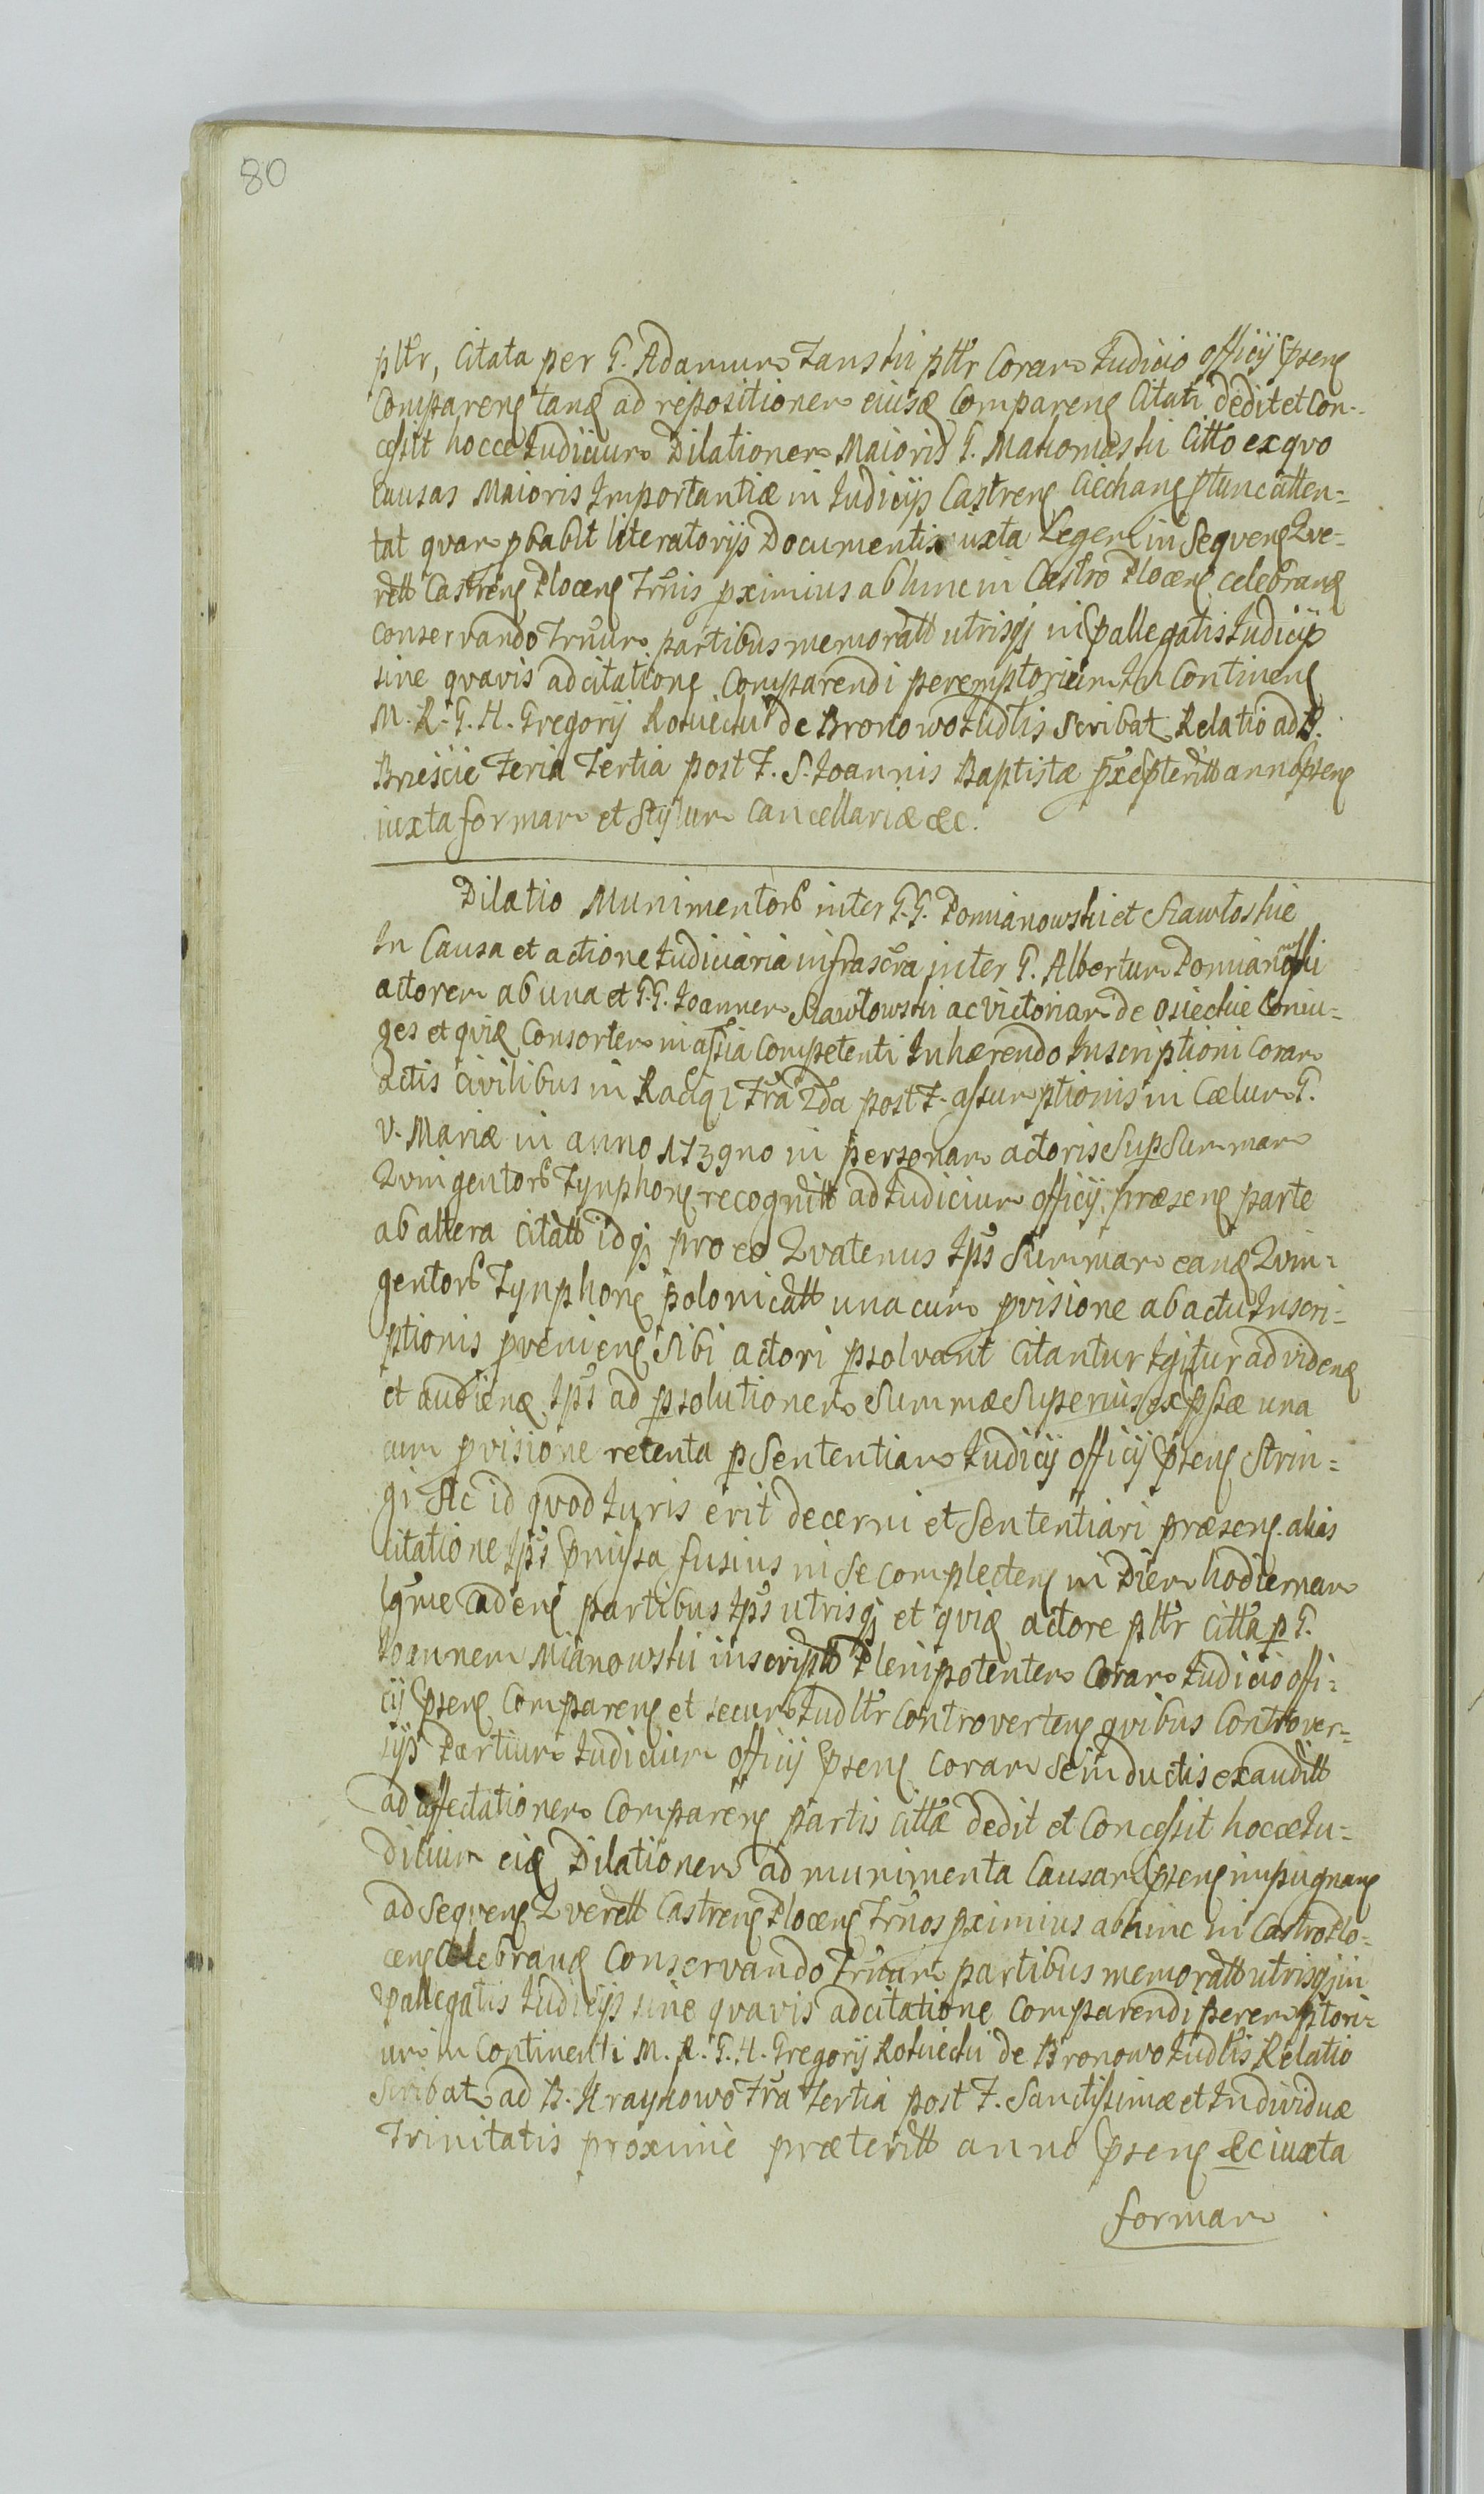 80
pltr, Citata per G. Adamum Janski pltr Coram Judicio officij pseng
Compareng tanq ad repositionem eiusq Compareng Citati dedit et Con-
cessit hocce Judicium Dilationem Maioris G. Makomaski Citto ex quo
Causas Maioris Importantiæ in Judicijs Castreng Ciechang ptunc atten=
tat quam pbabit literatorijs Documentis iuxta Legem in Sequeng Que=
rell Castreng Ploceng Trnis pximius abhinc in Castro Ploceng celebranq
conservando Trnum partibus memoratt utrisqj in pallegatis Judicijs
sine qvavis adcitatione Comparendi peremptorium In Contineng
M. R. G. H. Gregorij Rokicki de Bronowo Judlis Scribat Relatio ad B.
Brzeście Feria Tertia post F. S. Joannis Baptistæ px epteritt anno pseng
iuxta formam et Stylum Cancellariæ &c.
Dilatio Munimentorb inter G.G. Pomianowski et Szawłoskie
In Causa et actione Judiciaria infrascra inter G. Albertum Pomianowski
actorem ab una et G.G. Joannem Szawłowski ac Victoriam de Osieckie Coniu=
ges et qviq Consortem in assia Competenti Inhærendo Inscriptioni Coram
actis Civilibus in Raciąż Fra 2da post F. assumptionis in Cælum G.
V. Mariæ in anno 1739no in personam actoris Sup Summam
Qvingentorb Tynphong recognitt ad Judicium officij præseng parte
ab altera Citatt idqj pro eo Qvatenus Ips Summam eanq Qvin=
gentorb Tynphong polonicatt una cum pvisione ab actu Inscri=
ptionis pvenieng Sibi actori psolvant Citantur Igitur ad videnq
et audienq Ips ad psolutionem Summæ Superius expssæ una
cum pvisione retenta p Sententiam Judicij officij pseng Strin=
gi Ac id quod Juris erit decerni et Sententiari præseng alias
Citatione Ips pmissa fusius in Se complecteng in Diem hodiernam
lgme cadeng partibus Ips utrisqj et qviq actore pltr citta p G.
Joannem Mianowski inscriptt Plenipotentem Coram Judicio offi=
cij pseng Compareng et secum Judltr Controverteng qvibus Controver=
sijs Partium Judicium officij pseng Coram Se inductis exauditt
ad affectationem Compareng partis cittæ dedit et Concessit hocce Ju=
dicium eiq Dilationem ad munimenta Causam pseng impugnang
ad Seqveng Qverell Castreng Ploceng Trnos pximius abhinc in Castro Plo=
ceng Celebranq Conservando Trnum partibus memoratt utrisqj in
pallegatis Judicijs sine qvavis adcitatione Comparendi peremptori=
um in Continenti M. R. G. H. Gregorij Rokicki de Bronowo Judlis Relatio
Scribat ad B. Kraykowo Fra Tertia post F. Sanctissimæ et Individuæ
Trinitatis proxime præteritt anno pseng &c iuxta
formam